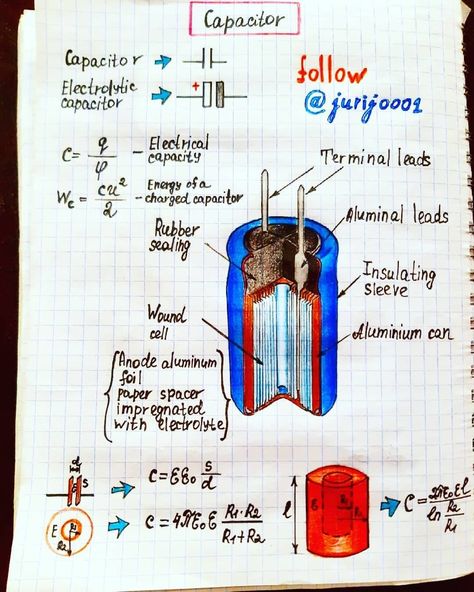 Capacitor
Capacitor
Electrolytic
capacitor
+
follow
@jurij0001
C = q/φ – Electrical
capacity
Wc = cu²/2 – Energy of a
charged capacitor
Terminal leads
Aluminal leads
Rubber
sealing
Insulating
sleeve
Wound
cell
Aluminium can
(Anode aluminum
foil
paper spacer
impregnated
with electrolyte)
d
ε S
C = εε₀ s/d
E R₁
R₂
C = 4πε₀ε R₁·R₂/R₁+R₂
l
ε R₁
R₂
C = 2πε₀εl/ln R₂/R₁